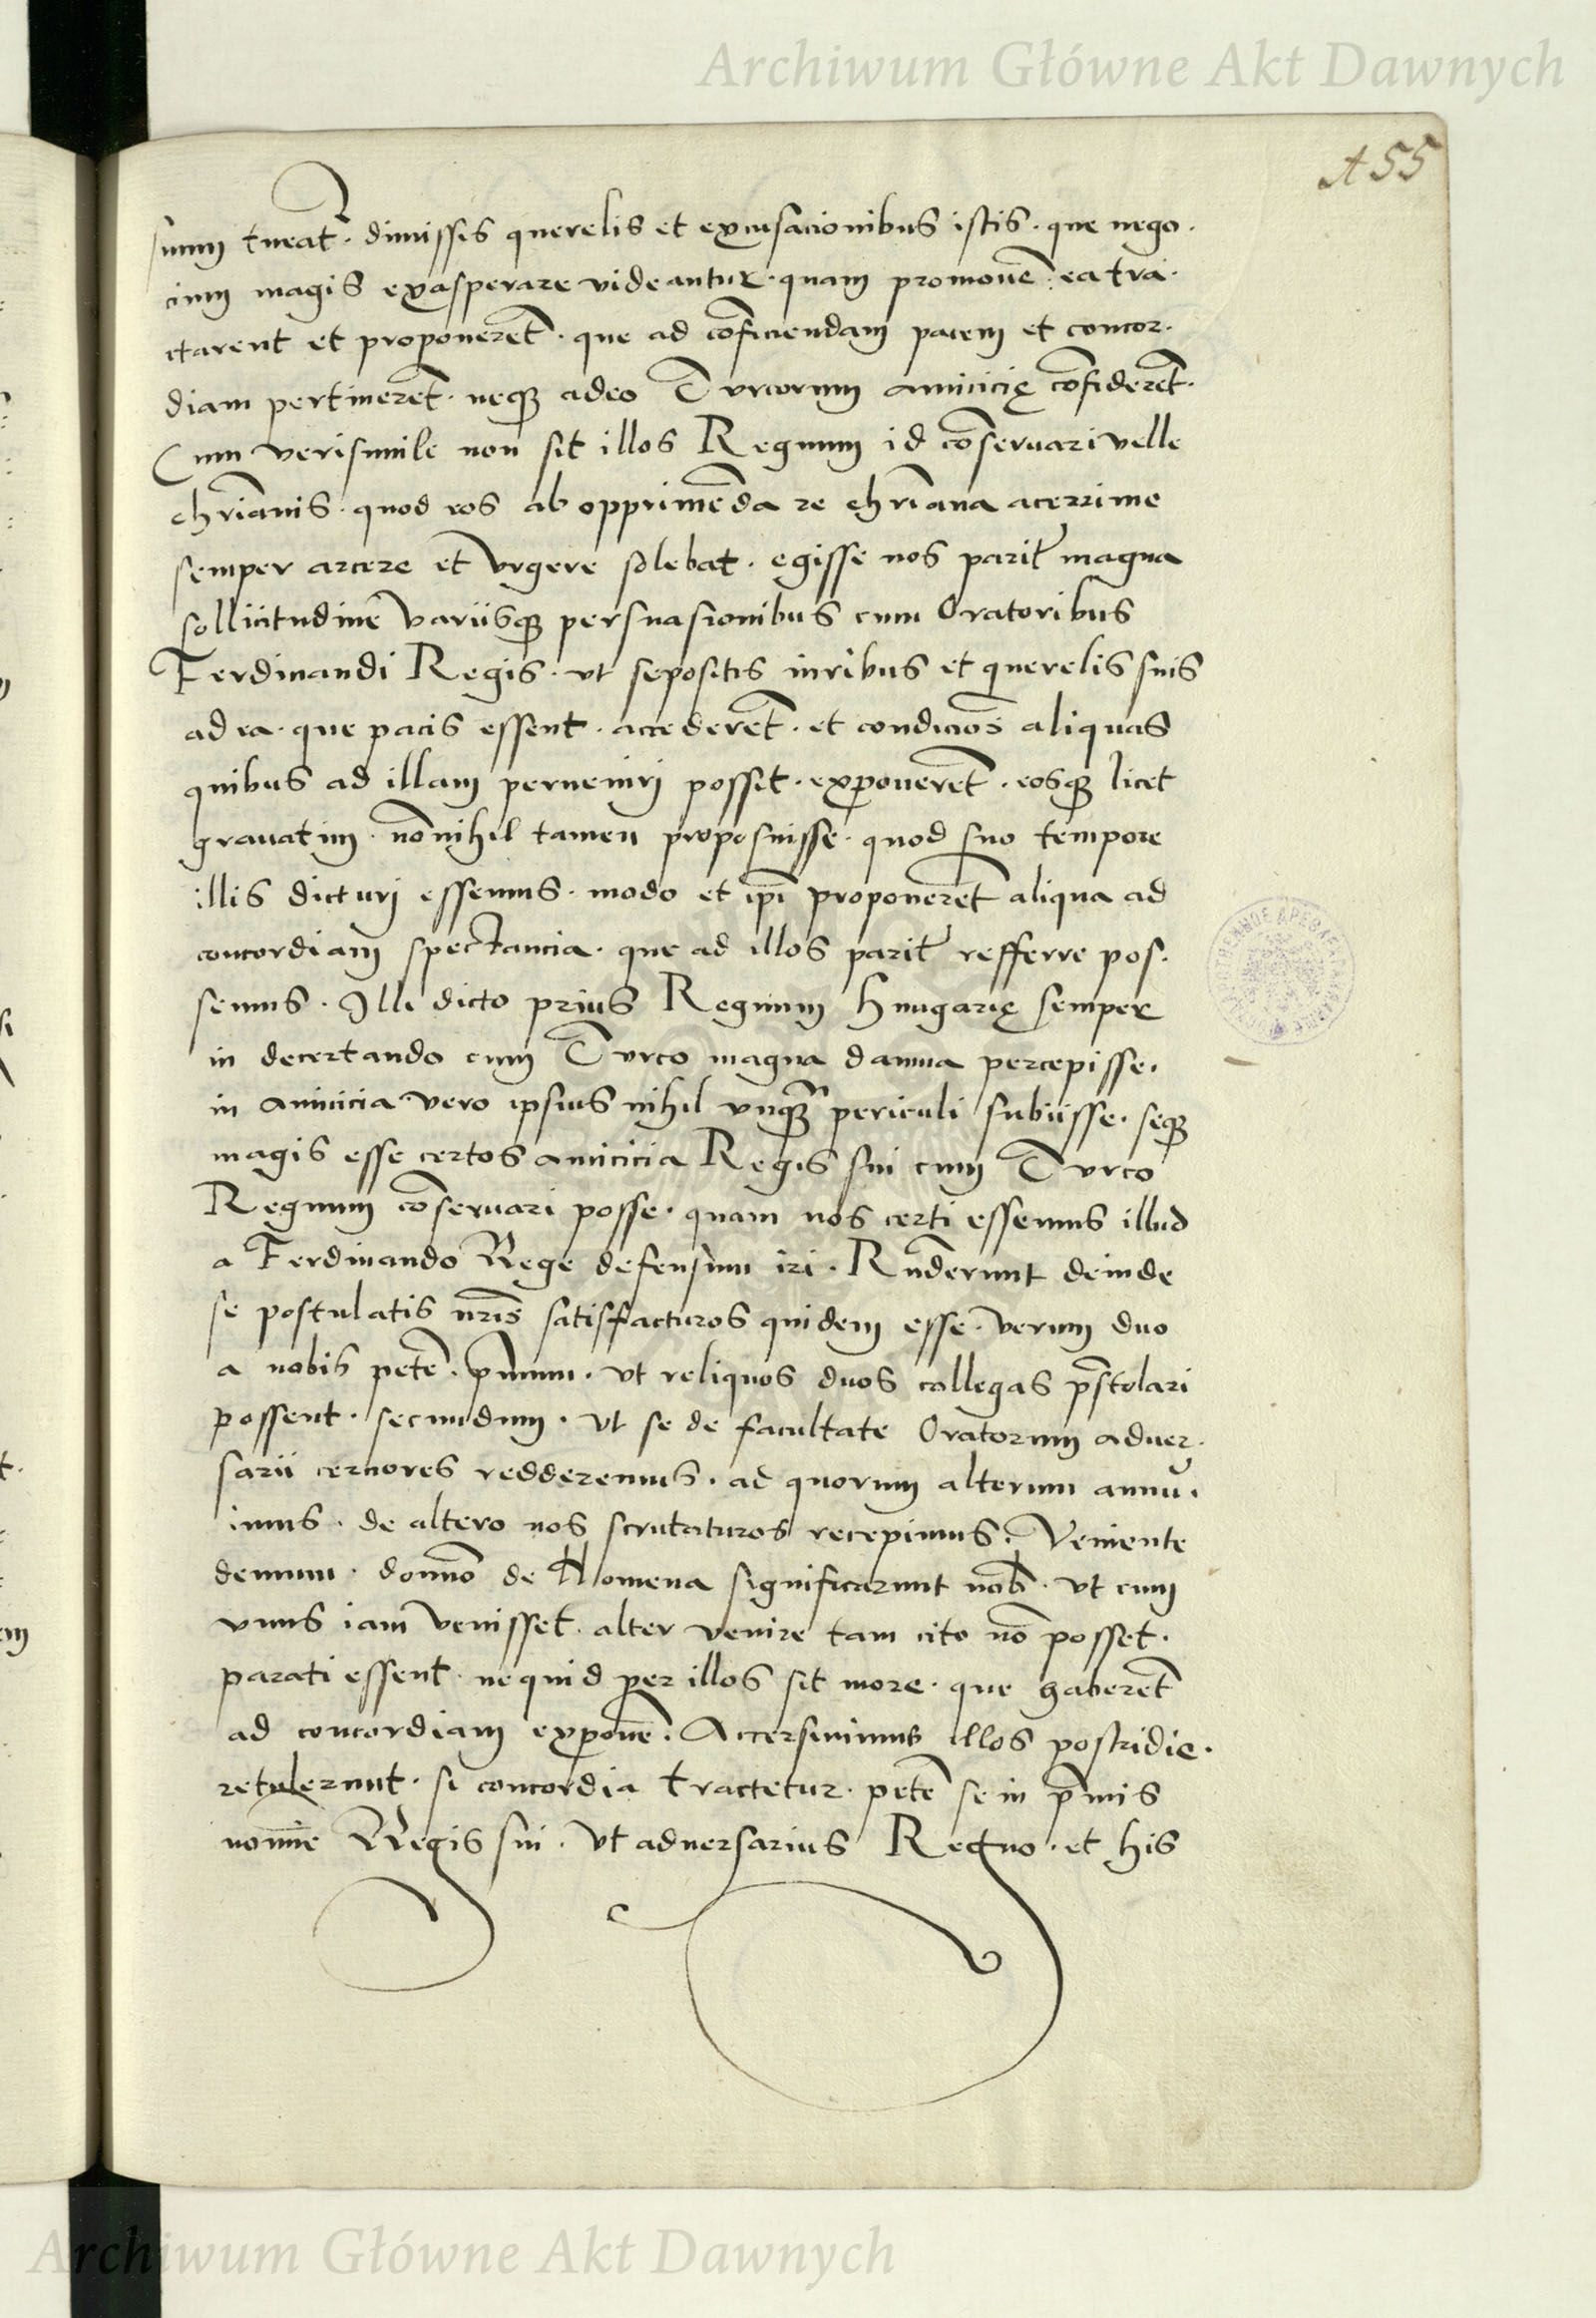 Archiwum Główne Akt Dawnych
A 55
suum tueat̄r. dimissis querelis et excusacionibus istis. que nego.
cium magis exasperare videantur. quam promouē: ea tra.
ctarent et proponerēt. que ad cōficiendam pacem et concor.
diam pertinerēt. neqꝫ adeo Turcorum amicicię cōfiderēt.
Cum verisimile non sit illos Regnum id cōseruari velle
chrīanis. quod eos ab opprimēda re chrīana acerrime
semper arcere et vrgere solebat. egisse nos parit̄ magna
sollicitudine varijsqꝫ persuasionibus cum Oratoribus
Ferdinandi Regis. vt sepositis iuribus et querelis suis
ad ea. que pacis essent. accederēt. et condiciōs aliquas
quibus ad illam perueniri possit. exponerēt. eosqꝫ licet
grauatim. nōnihil tamen proposuisse. quod suo tempore
illis dicturi essemus. modo et ip̄i proponerēt aliqua ad
concordiam spectancia. que ad illos parit̄ refferre pos.
semus. Illi dicto prius Regnum Hungarię semper
in decertando cum Turco magna damna percepisse.
in amicicia vero ipsius nihil vnqꝫ̄ periculi subijsse. seqꝫ
magis esse certos amicicia Regis sui cum Turco
Regnum cōseruari posse. quam nos certi essemus illud
a Ferdinando Rege defensum iri. Rn̄derunt deinde
se postulatis nr̄is satisfacturos quidem esse. verum duo
a nobis petē. p̄mum. vt reliquos duos collegas p̄stolari
possent. secundum. vt se de facultate Oratorum aduer.
sarij cerciores redderemus. ad quorum alterum annu.
imus. de altero nos scrutaturos recepimus. Veniente
demum. domīo de Homena significarunt nob̄. vt cum
vnus iam venisset. alter venire tam cito nō posset.
parati essent. ne quid per illos sit more. que haberēt
ad concordiam exponē. Accersiuimus illos postridie.
retulerunt. si concordia tractetur. petē se in p̄mis
nomīe Regis sui. vt aduersarius Regno. et his
Archiwum Główne Akt Dawnych